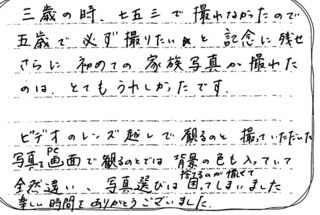 三歳の時、七五三で撮れなかったので
五歳で必ず撮りたいと記念に残せ
さらに初めての家族写真が撮れた
のは、とてもうれしかったです。
ビデオのレンズ越しで観るのと撮っていただいた
写真をPC画面で観るのとでは背景の色も入っていて
全然違い、写真選びは捨てるのが惜しくて困ってしまいました
楽しい時間をありがとうございました。